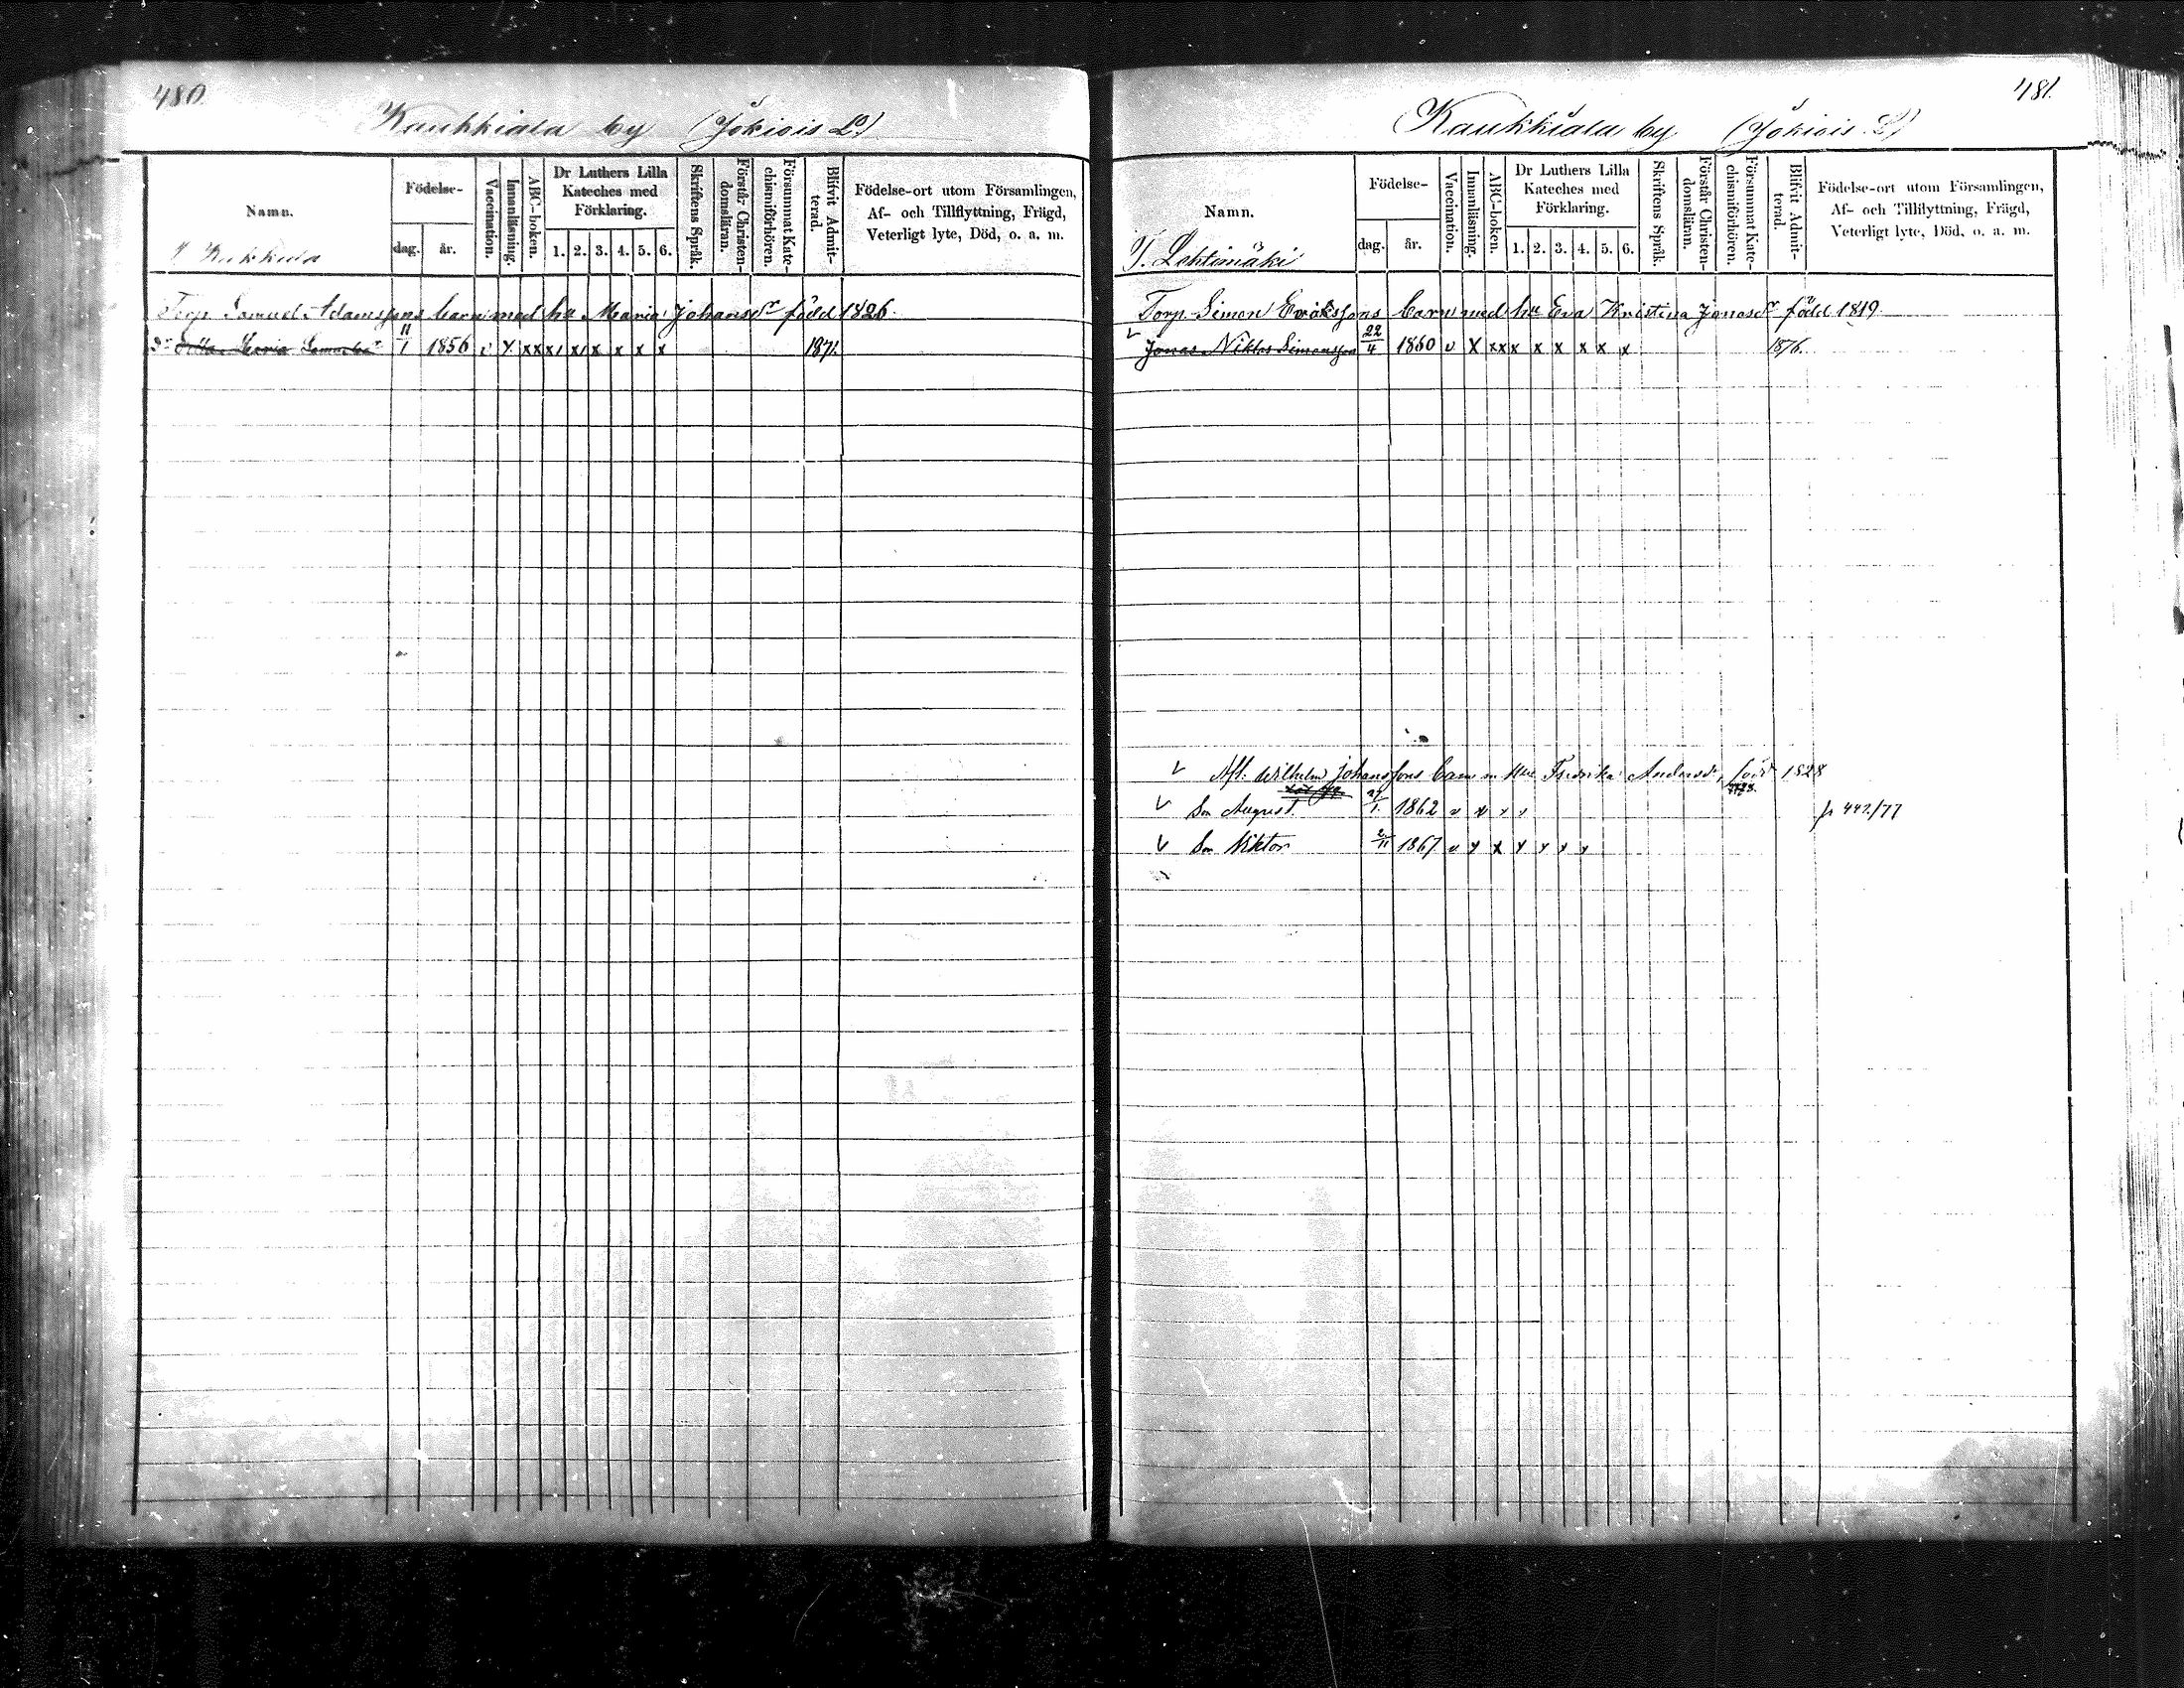 480.
Kaukkiala by (Jokiois Lo)
Namn.
Födelse-
dag.
år.
Vaccination.
Innanläsning.
ABC-boken.
Dr Luthers Lilla Kateches med Förklaring.
1. 2. 3. 4. 5. 6.
Skriftens Språk.
Förstår Christen-domsläran.
Försummat Kate-chismiförhören.
Blifvit Admit-terad.
Födelse-ort utom Församlingen,
Af- och Tillflyttning, Frägd,
Veterligt lyte, Död, o. a. m.
Torp. Samuel Adamssons barn med hu Maria Johansdr född 1826.
Maria Samuelsdr 11/1 1856 v x xx x x x x x x 1871.
481.
Kaukkiala by (Jokiois L)
Namn.
T. Lehtimäki
Födelse-
dag.
år.
Vaccination.
Innanläsning.
ABC-boken.
Dr Luthers Lilla
Kateches med
Förklaring.
1. 2. 3. 4. 5. 6.
Skriftens Språk.
Förstår Christen-domsläran.
Försummat Kate-chismiförhören.
Blifvit Admit-terad.
Födelse-ort utom Församlingen,
Af- och Tillflyttning, Frägd,
Veterligt lyte, Död, o. a. m.
Torp. Simon Erikssons barn med hu Eva Kristina Jonasdr född 1819.
Jonas Niklas Simonsson 22/4 1860 v x xx x x x x x x 1876.
Wilhelm Johanssons barn m hu Fredrika Andersdr född 1828
Son August. 1862 v x x x 442/77
Son Viktor 1867 v x x x x x x